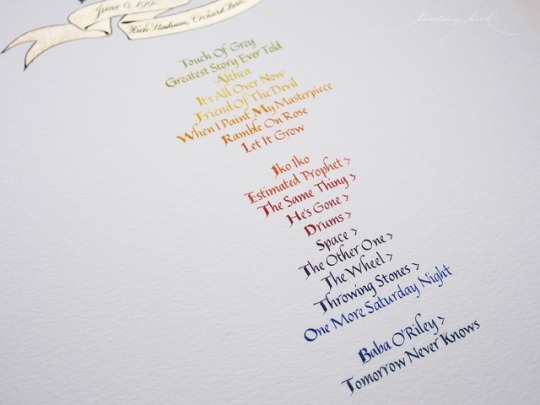 Rich Stadium, Orchard Park
Touch Of Grey
Greatest Story Ever Told
Althea
It's All Over Now
Friend Of The Devil
When I Paint My Masterpiece
Ramble On Rose
Let It Grow
Iko Iko
Estimated Prophet >
The Same Thing >
He's Gone >
Drums >
Space >
The Other One >
The Wheel >
Throwing Stones >
One More Saturday Night
Baba O'Riley >
Tomorrow Never Knows